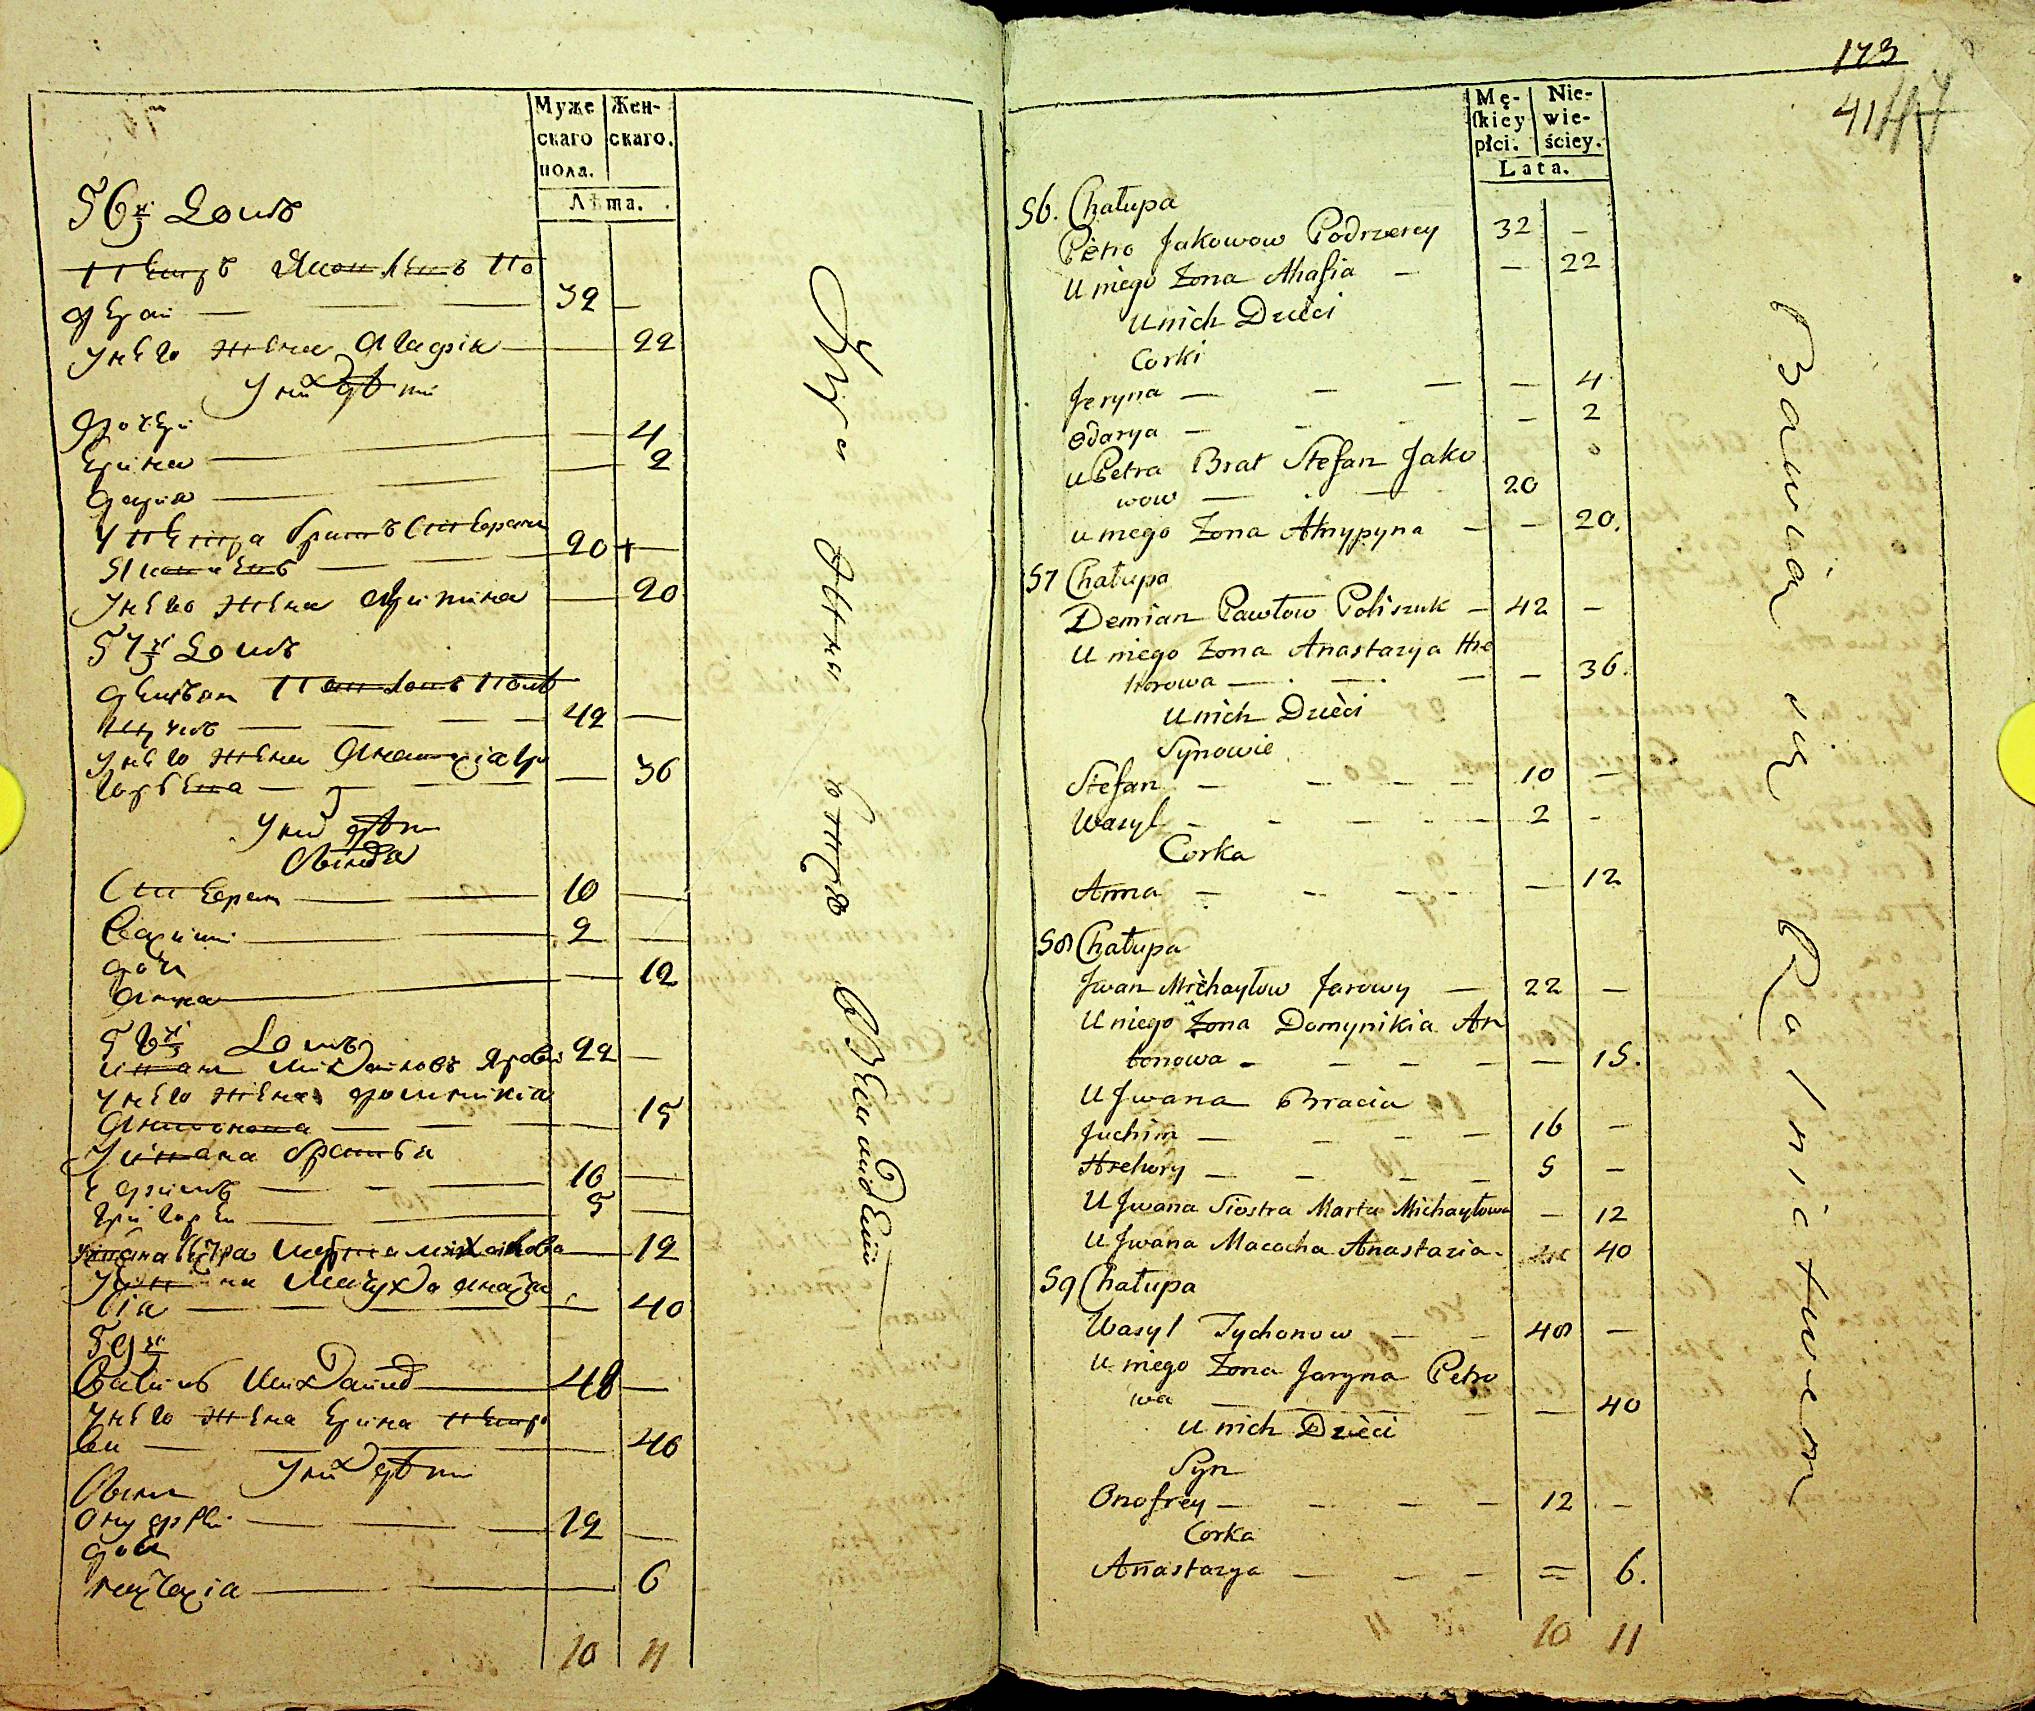 Муже Жен-
скаго скаго.
пола.
Лѣта.
56й Домъ
Петръ Яковлевъ По
дерей — 32 —
У него жена Агафія — 22
У них дѣти
Дочери
Ерина — 4
Дарія — 2
У Петра братъ Стефанъ
Яковлевъ — 20 —
У него жена Агрипина — 20
57й Домъ
Демьян Павловъ Поли
щукъ — 42 —
У него жена Анастасія Гри
горьева — 36
У них дѣти
Стефан — 10 —
Василий — 2 —
дочь
Анна — 12
58й Домъ
Иван Михайловъ Яровый 22 —
У него жена Домникія
Антонова — 15
У Ивана братья
Ефимъ — 16 —
Григорей — 5 —
У Ивана сестра Марта Михайлова — 12
У Ивана Мачуха Анаста
сія — 40
59й
Василь — 48 —
У него жена Ерина Петро
ва — 40
У них дѣти
Онуфрей — 12 —
дочь
— 6
10 11
173
41 47
Mę- Nie-
skiey wie-
płci. ściey.
Lata.
56. Chałupa
Petro Jakowow Podrzerey 32 —
U niego Żona Ahafia — — 22
U nich Dzieci
Corki
Jeryna — — — — 4
Odarya — — — — 2
U Petra Brat Stefan Jako
wow — — 20
U niego Żona Ahrypyna — — 20.
57 Chałupa
Demian Pawłow Poliszuk — 42 —
U niego Żona Anastazya Hre
horowa — — — — 36.
U nich Dzieci
Synowie
Stefan — — — — 10 —
Wasyl — — — — 2 —
Corka
Anna — — — — — 12
58 Chałupa
Jwan Michayłow Jarowy — 22 —
U niego Żona Domynikia An
tonowa — — — — — 15.
U Jwana Bracia
Juchim — — — — 16 —
Hrehory — — — — 5 —
U Jwana Siostra Marta Michayłowa — 12
U Jwana Macocha Anastazia — 40
59 Chałupa
Wasyl Tychonow — — 48 —
U niego Żona Jaryna Petro
wa — — — — — 40
U nich Dzieci
Syn
Onofrey — — — — 12 —
Corka
Anastazya — — — = 6.
10 11
Bawią się Rolnictwem